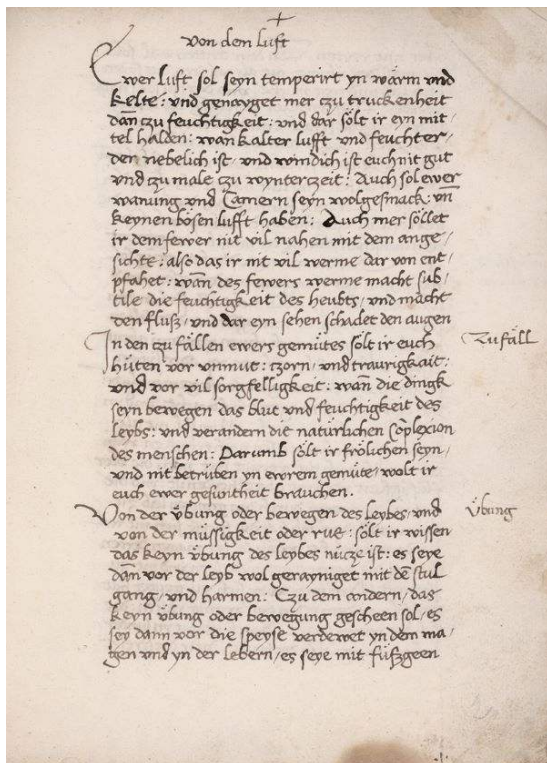 von dem luft
Ewer luft sol seyn temperirt yn wärm vnd
kelte: vnd genayget mer czu truckenheit
dañ czu feuchtigkeit: vnd dar sölt ir eyn mit-
tel halden: wan kalter lufft vnd feuchter/
der nebelich ist vnd windich ist euch nit gut
vnd czu male czu wynterzeit: Auch sol ewer
wanung vnd Camern seyn wolgesmack: vñ
keynen bösen lufft haben: Auch mer söllet
ir dem fewer nit vil nahen mit dem ange/
sichte: also das ir nit vil werme dar von ent/
pfahet: wan des fewers werme macht sub/
tile die feuchtigkeit des heubts/ vnd macht
den fluß/ vnd dar eyn sehen schadet den augen
In den zufällen ewers gemütes sölt ir euch
Zufäll
hüten vor vnmut: czorn/ vnd traurigkait:
vnd vor vil sorgfelligkeit: wañ die dingk
seyn bewegen das blut vnd feuchtigkeit des
leybs: vnd verandern die natürlichen cõplexion
des menschen: Darumb sölt ir frölichen seyn/
vnd nit betrüben yn ewrem gemüte/ wolt ir
euch ewer gesuntheit brauchen.
Von der übung oder bewegen des leybes/ vnd
Übung
von der müssigkeit oder rue: sölt ir wissen
das keyn übung des leybes nücze ist: es seye
dañ vor der leyb wol gerayniget mit dē stul
gang/ vnd harmen: Czu dem andern/ das
keyn übung oder bewegung gescheen sol/ es
sey dann vor die speyse verdewet yn dem ma/
gen vnd yn der lebern/ es seye mit füßgeen